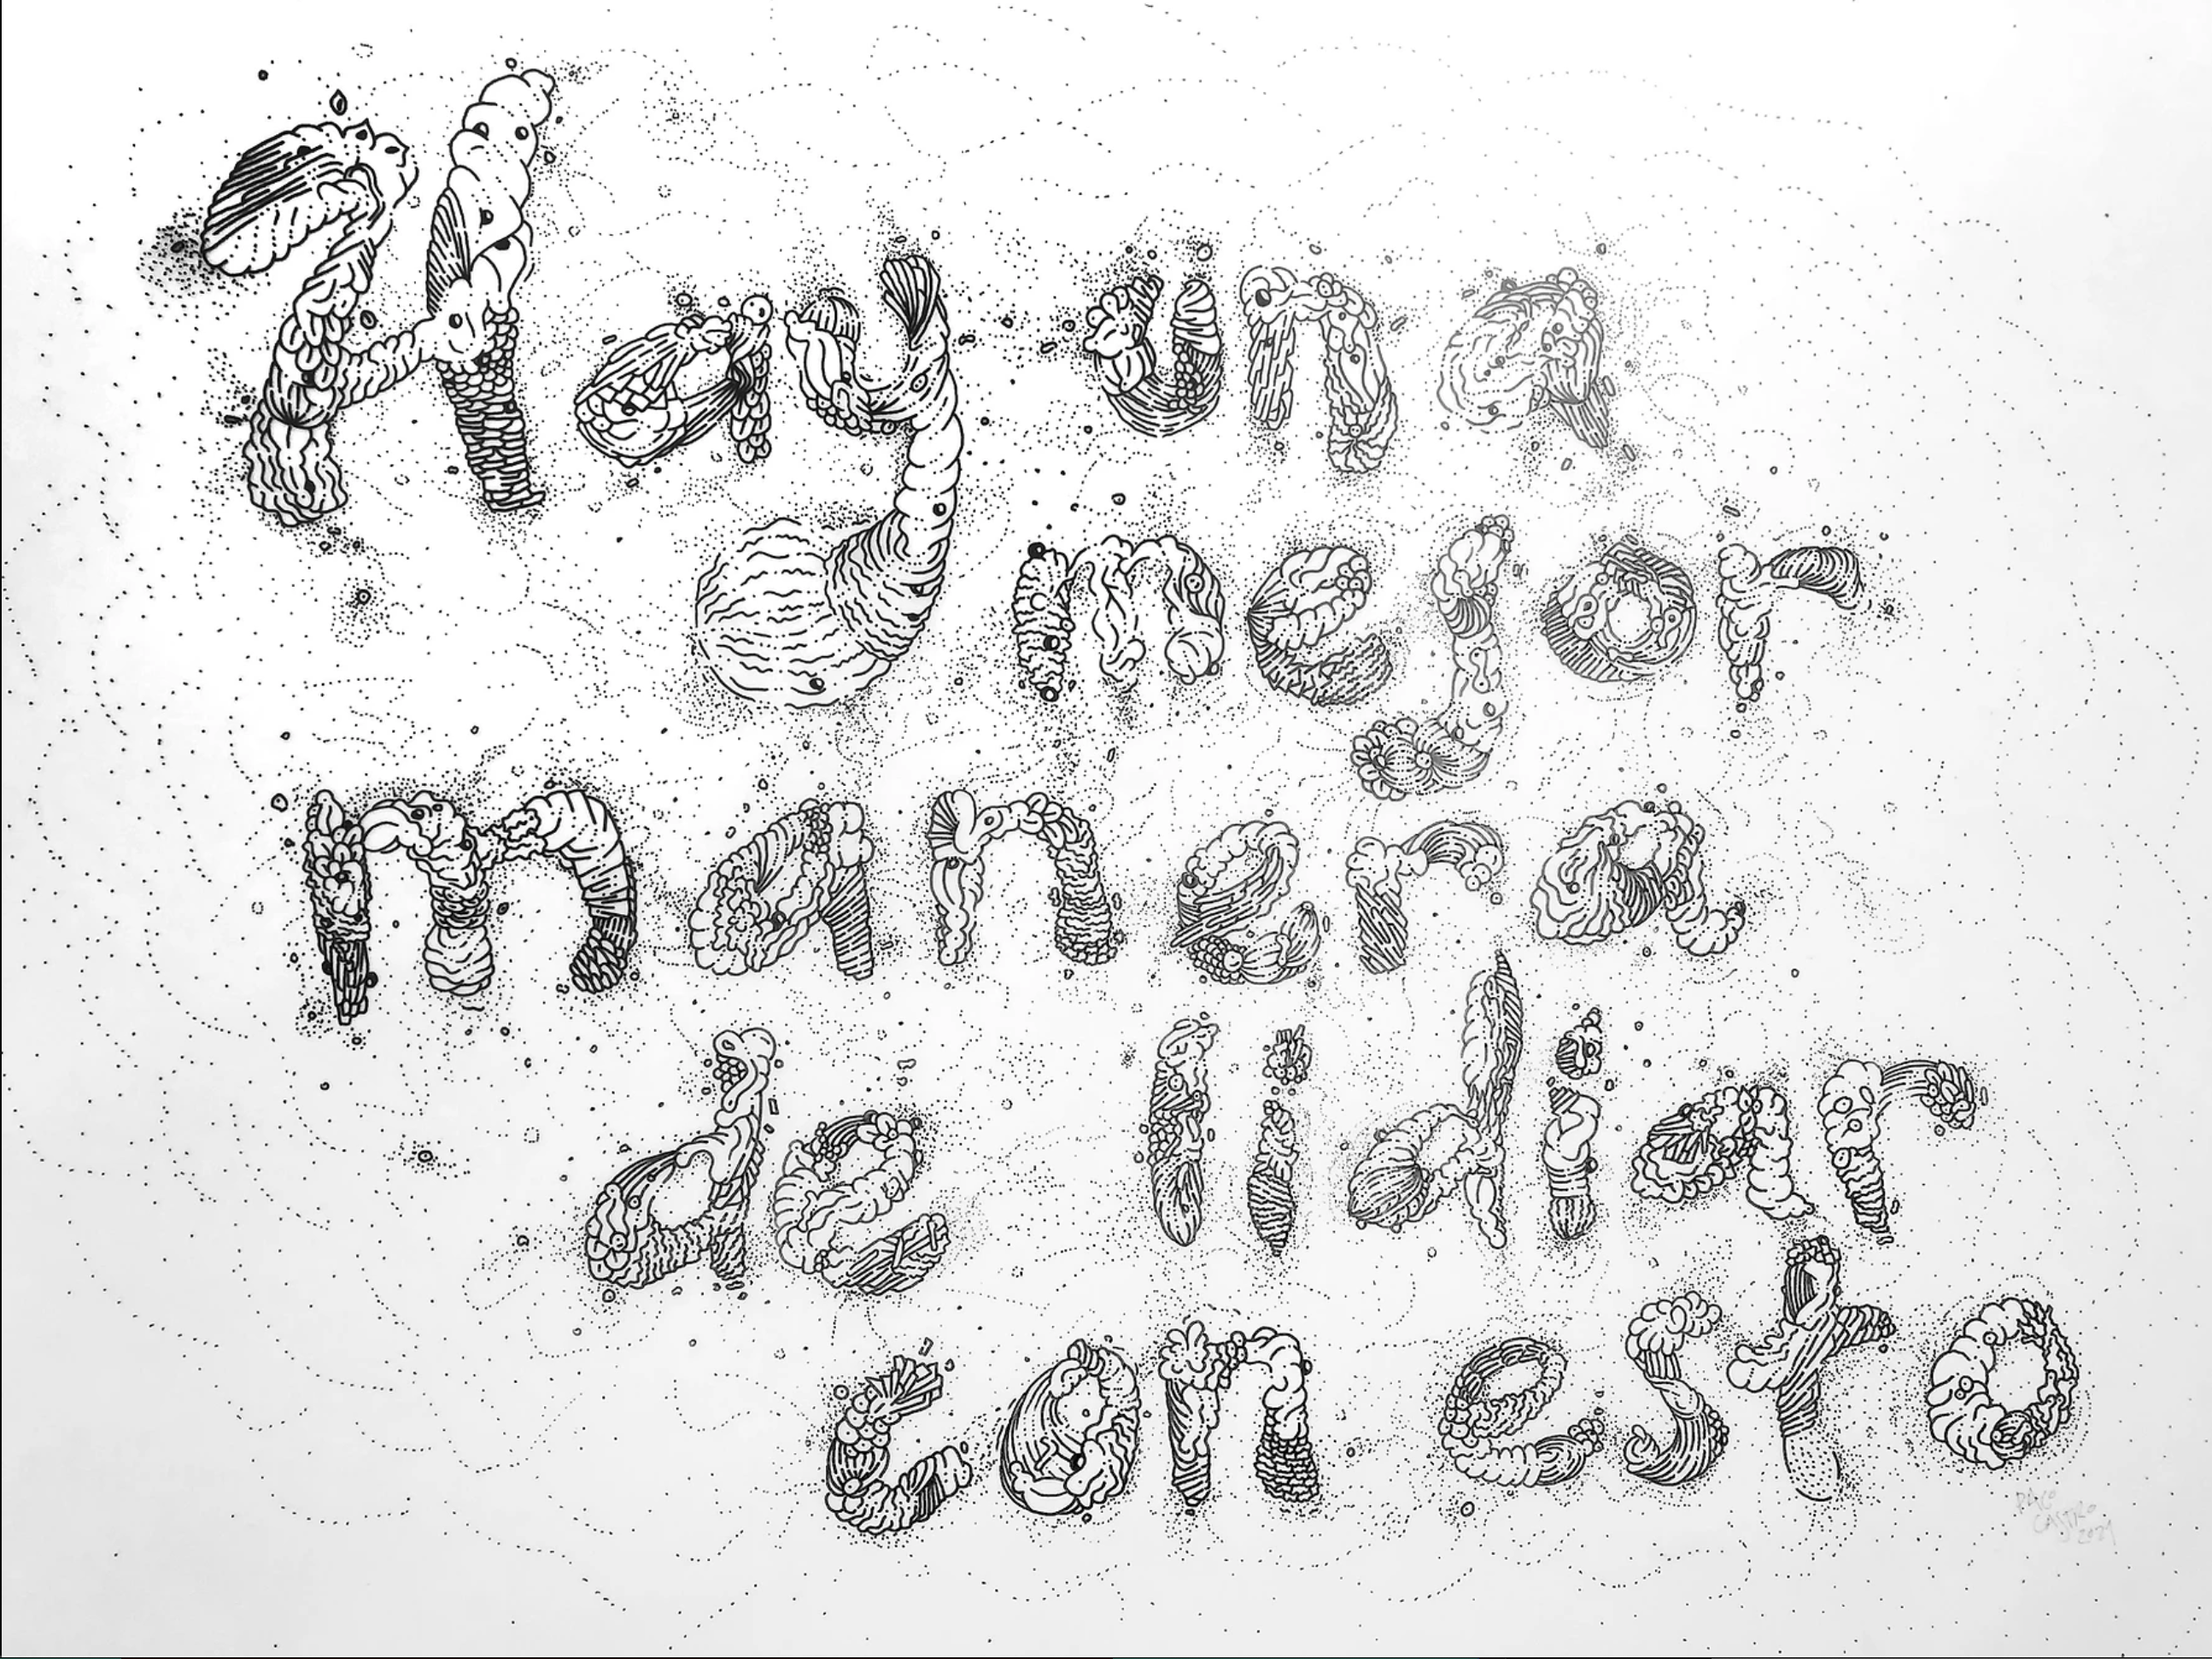 Hay una
mejor
manera
de lidiar
con esto
PACO
CASTRO
2021